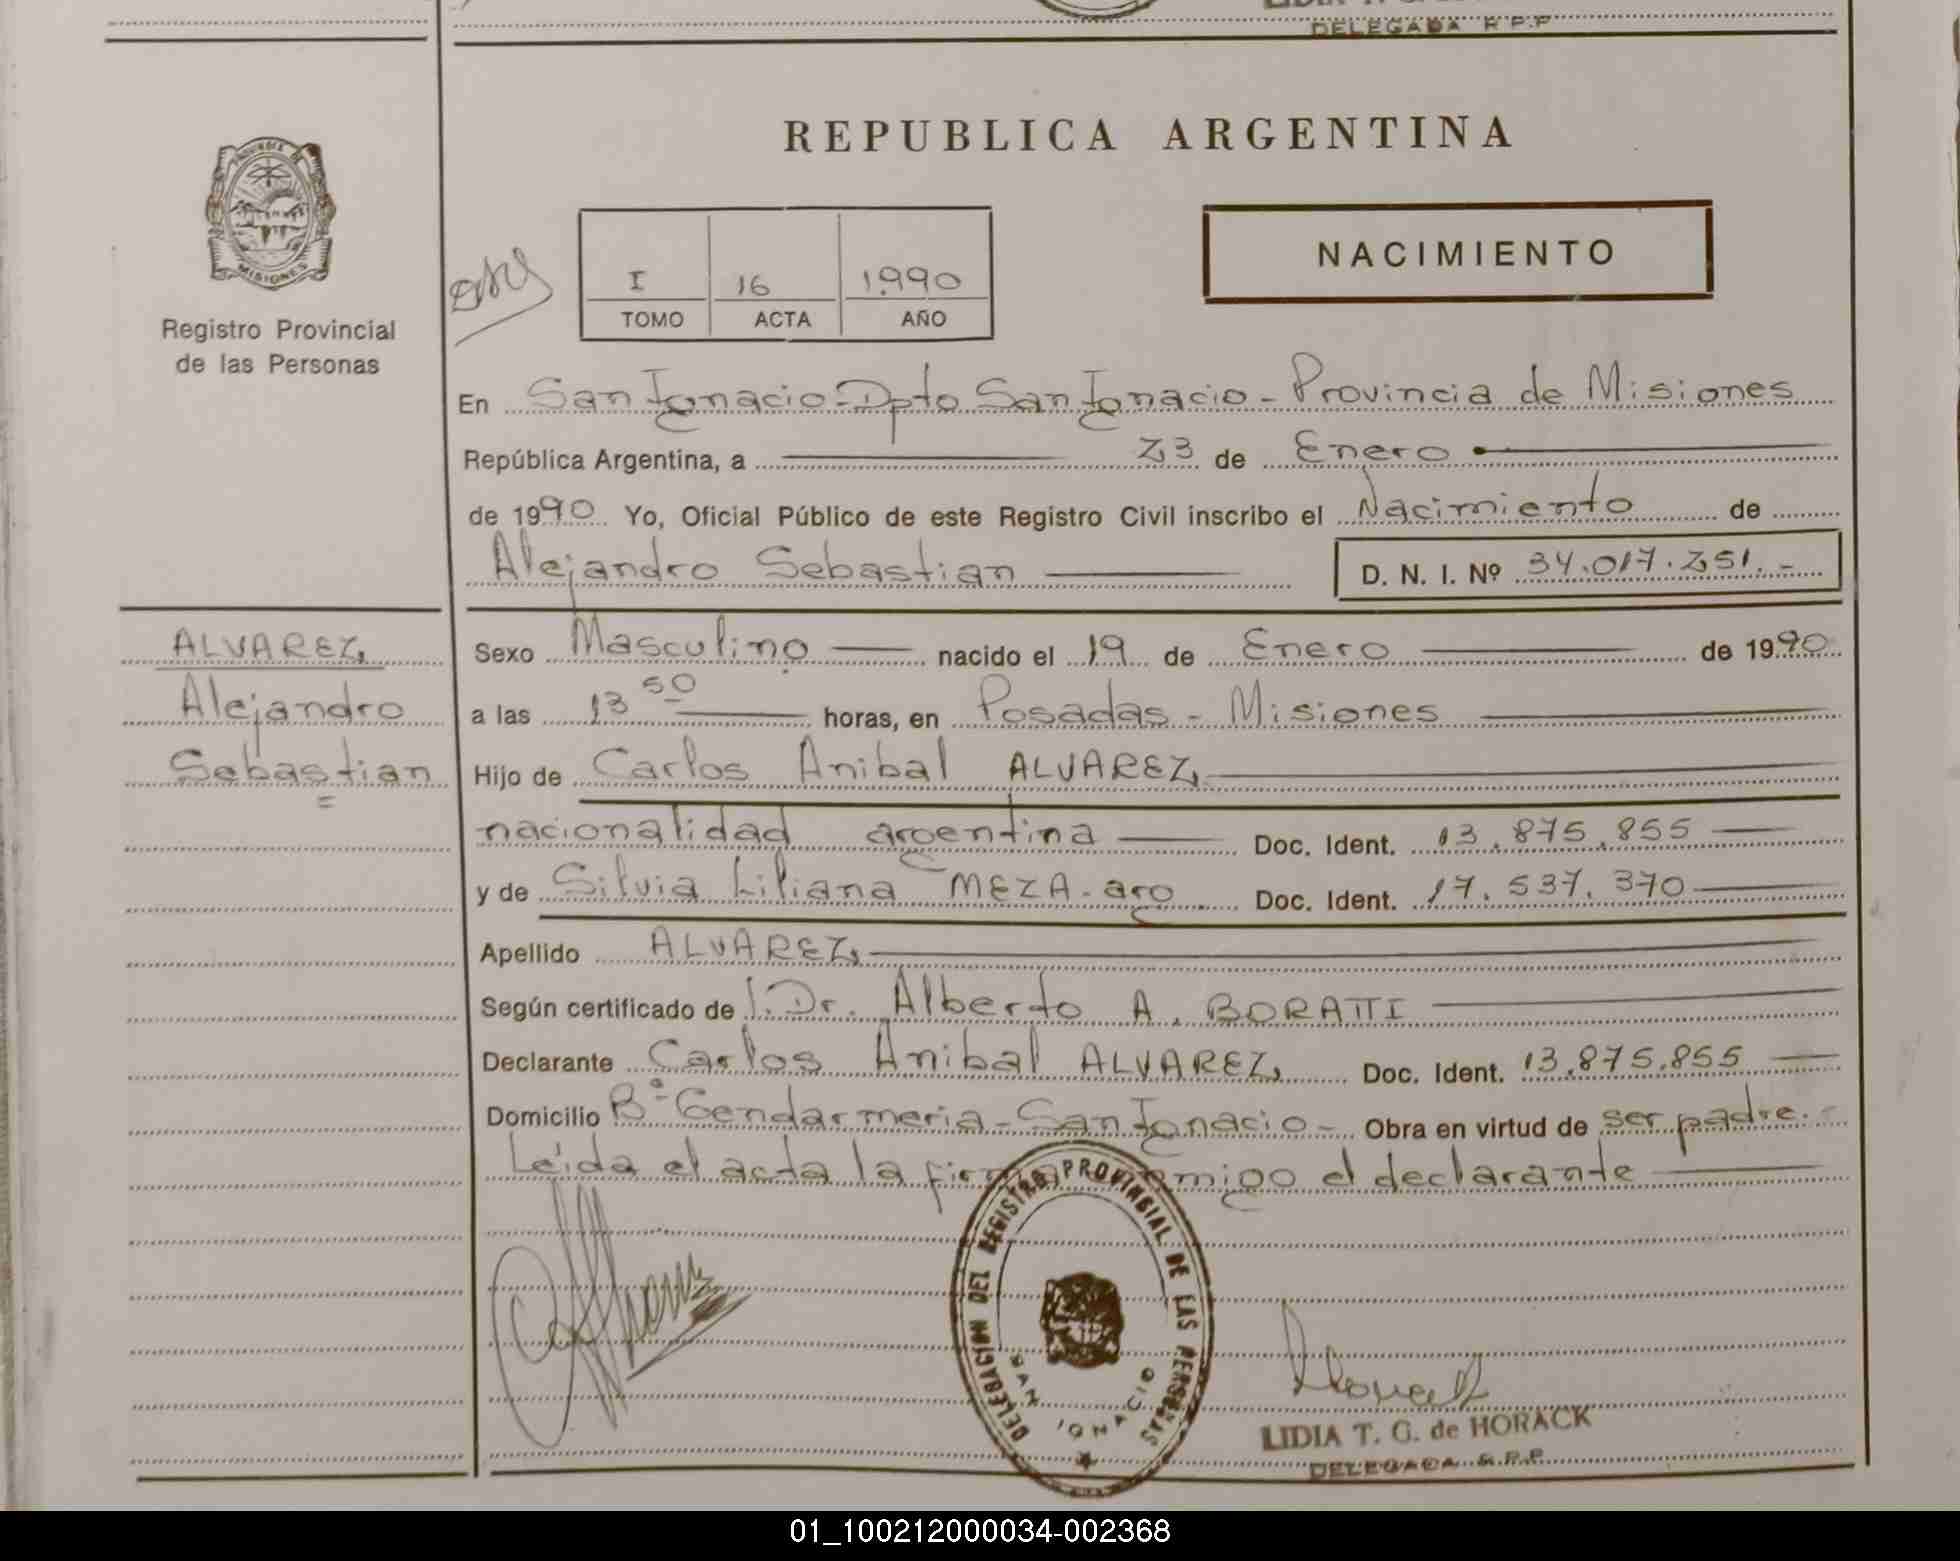 DELEGADA R.P.P
REPUBLICA ARGENTINA
PROVINCIA DE
MISIONES
Registro Provincial
de las Personas
I 16 1.990
TOMO ACTA AÑO
NACIMIENTO
En San Ignacio-Dpto San Ignacio-Provincia de Misiones
República Argentina, a 23 de Enero
de 1990 Yo, Oficial Público de este Registro Civil inscribo el Nacimiento de
Alejandro Sebastian D. N. I. Nº 34.017.251.-
ALVAREZ
Alejandro
Sebastian
Sexo Masculino nacido el 19 de Enero de 1990
a las 13 50 horas, en Posadas - Misiones
Hijo de Carlos Anibal ALVAREZ
nacionalidad argentina Doc. Ident. 13.875.855
y de Silvia Liliana MEZA-arg Doc. Ident. 17.537.370
Apellido ALVAREZ
Según certificado de l.Dr. Alberto A. BORATTI
Declarante Carlos Anibal ALVAREZ Doc. Ident. 13.875.855
Domicilio Bº Gendarmeria-San Ignacio- Obra en virtud de ser padre.-
Leida el acta la firma migo el declarante
DELEGACION DEL REGISTRO PROVINCIAL DE LAS PERSONAS
SAN IGNACIO
LIDIA T. G. de HORACK
DELEGADA R.P.P
01_100212000034-002368